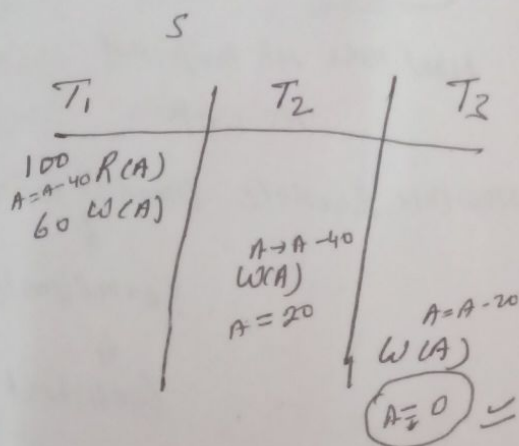 S
T1 T2 T3
100 R(A)
A=A-40
60 W(A)
A→A-40
W(A)
A=20
A=A-20
W(A)
A=0